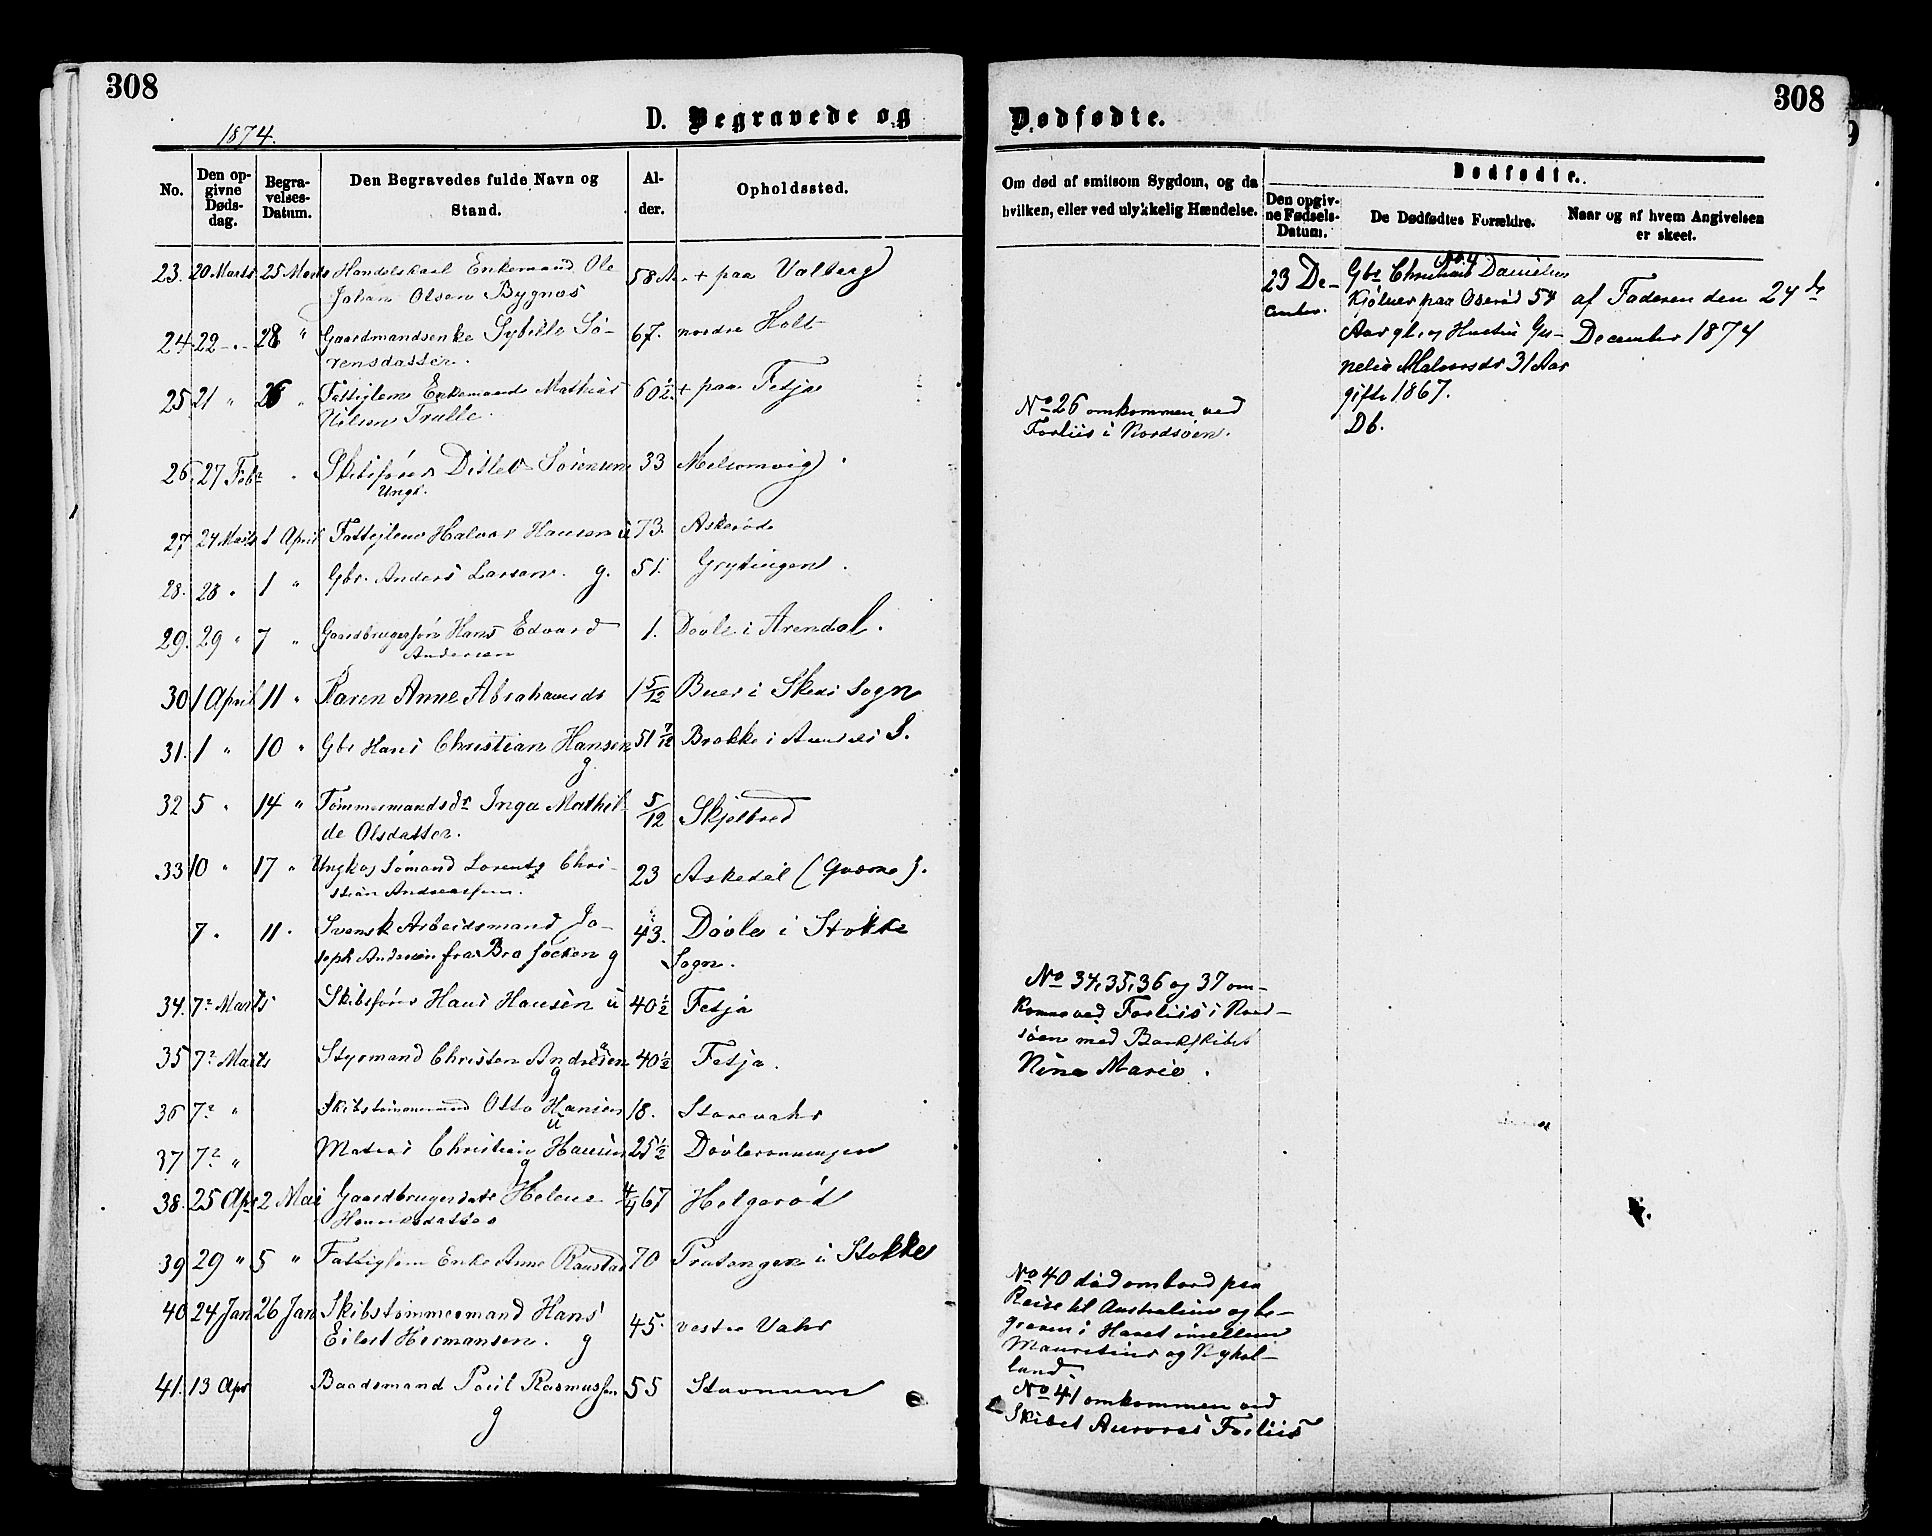 308
1874.
D. Begravede og
No.
Den opgivne Dødsdag.
Begravelses-Datum.
Den Begravedes fulde Navn og Stand.
Alder.
Opholdssted.
23. 20 Marts 25 Marts Handelskarl Enkemand Ole 58 + paa Valberg
Johan Olsen Bygnes
24 22 - " - 28 " Gaardmandsenke Sybille Sø- 67. nordre Holt
rensdatter.
25 21 " 26 " Fattiglem Enkemand Mathias 60 1/2 + paa Fetja
Nilsen Trulle.
26. 27 Febr " Skibsfører Ditlev Sørensen 33 Melsomvig.
Ungk.
27 24 Marts 1 April Fattiglem Halvor Hansen u 73. Askerøds
28. 28 " 1 " Gbr. Anders Larsen. g. 51. Grytingen.
29. 29 " 7 " Gaardbrugersøn Hans Edvard 1. Døvle i Arendal.
Andersen
30 1 April 11 " Karen Anne Abrahamsdr 1 5/12 Buer i Skees Sogn
31. 1 " 10 " Gbr Hans Christian Hansen 51 7/12 Brekke i S.
g.
32 5 " 14 " Tømmermandsdr Inga Mathil- 5/12 Skjelbred
de Olsdatter.
33 10 " 17 " Ungk og Sømand Lorentz Chri- 23 Askedal
stian Andreassen.
7 " 11 " Svensk Arbeidsmand Jo- 43. Døvle i Stokke
seph Andersen fra Bro Socken g Sogn.
34. 7 Marts Skibsfører Hans Hansen u 40 1/2 Fetja
35 7 Marts Styrmand Christen Andresen 40 1/2 Fetja.
g
36 7 " Skibstømmermand Otto Hansen 18.
u
37 7 " Matros Christian Hansen 25 1/2
g
38. 25 Apr 2 Mai Gaardbrugerdatt Helene 4/467 Helgerød
Henriksdatter
39 29 " 5 " Fattiglem Enke Anne 70 i Stokke
40 24 Jan 26 Jan Skibstømmermand Hans 45. vestre Vahr
Eilert Hermansen. g
41. 13 Apr Baadsmand Poul Rasmussen 55 Stavnum
g
308
Dødfødte.
Om død af smitsom Sygdom, og da hvilken, eller ved ulykkelig Hændelse.
Dødfødte.
Den opgivne Fødsels-Datum.
De Dødfødtes Forældre.
Naar og af hvem Angivelsen er skeet.
23 De-
cember.
Gbr Christian Danielsen
Kjølner paa Oserød 54
Aar gl. og Hustru Gu-
nelia Halvorsdr 31 Aar
gift 1867.
Db.
af Faderen den 24de
December 1874
No 26 omkommen ved
Forliis i Nordsøen.
No 34, 35, 36 og 37 om-
komne ved Forliis i Nord-
søen med Barkskibet
Nina Marie.
No 40 død ombord paa
Reise til Australien og be-
graven i Havet imellem
Mauretius og Nyhol-
land.
No 41 omkommen ved
Skibet Auroras Forliis